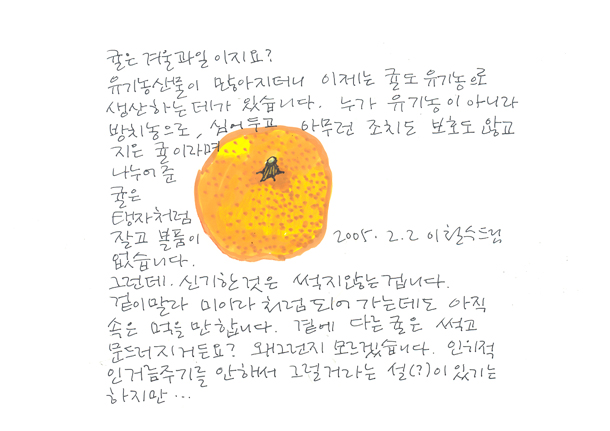 귤은 겨울과일이지요?
유기농산물이 많아지더니 이제는 귤도 유기농으로
생산하는데가 있습니다. 누가 유기농이 아니라
방치농으로, 심어두고 아무런 조치도 보호도 않고
지은 귤이라며
나누어준
귤은
탱자처럼
잘고 볼품이
없습니다.
2005. 2. 2 이철수드림
그런데. 신기한것은 썩지않는겁니다.
겉이말라 미이라처럼 되어가는데도 아직
속은 먹을만합니다. 곁에 다른귤은 썩고
문드러지거든요? 왜그런지 모르겠습니다. 인위적
인거름주기를 안해서 그럴거라는 설(?)이 있기는
하지만...